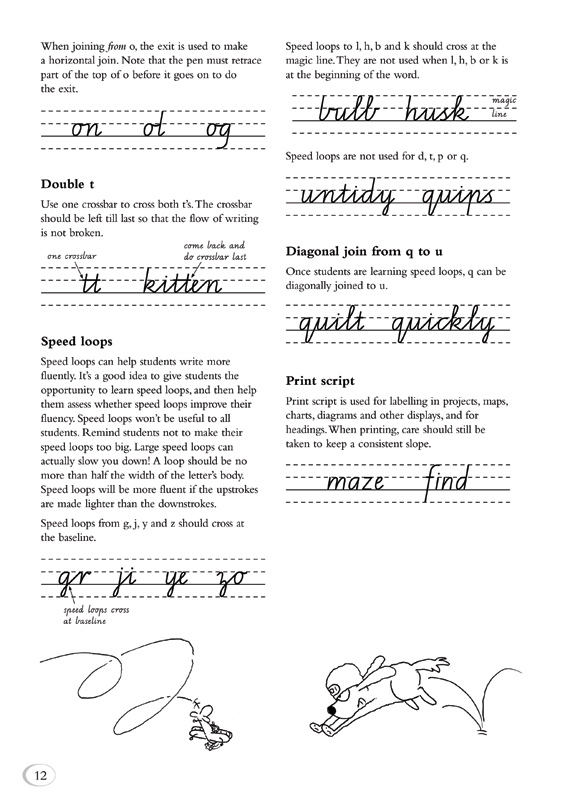 When joining from o, the exit is used to make
a horizontal join. Note that the pen must retrace
part of the top of o before it goes on to do
the exit.
on ot og
Double t
Use one crossbar to cross both t's. The crossbar
should be left till last so that the flow of writing
is not broken.
one crossbar
come back and
do crossbar last
tt kitten
Speed loops
Speed loops can help students write more
fluently. It's a good idea to give students the
opportunity to learn speed loops, and then help
them assess whether speed loops improve their
fluency. Speed loops won't be useful to all
students. Remind students not to make their
speed loops too big. Large speed loops can
actually slow you down! A loop should be no
more than half the width of the letter's body.
Speed loops will be more fluent if the upstrokes
are made lighter than the downstrokes.
Speed loops from g, j, y and z should cross at
the baseline.
gr ji ye zo
speed loops cross
at baseline
Speed loops to l, h, b and k should cross at the
magic line. They are not used when l, h, b or k is
at the beginning of the word.
bulb husk
magic
line
Speed loops are not used for d, t, p or q.
untidy quips
Diagonal join from q to u
Once students are learning speed loops, q can be
diagonally joined to u.
quilt quickly
Print script
Print script is used for labelling in projects, maps,
charts, diagrams and other displays, and for
headings. When printing, care should still be
taken to keep a consistent slope.
maze find
12